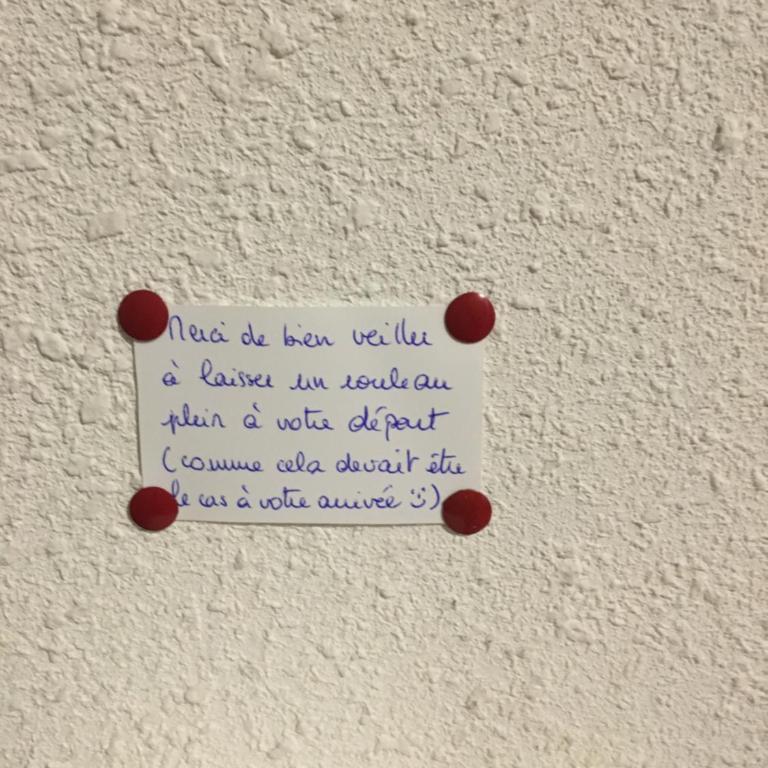 Merci de bien veiller
à laisser un rouleau
plein à votre départ
(comme cela devait être
le cas à votre arrivée :))